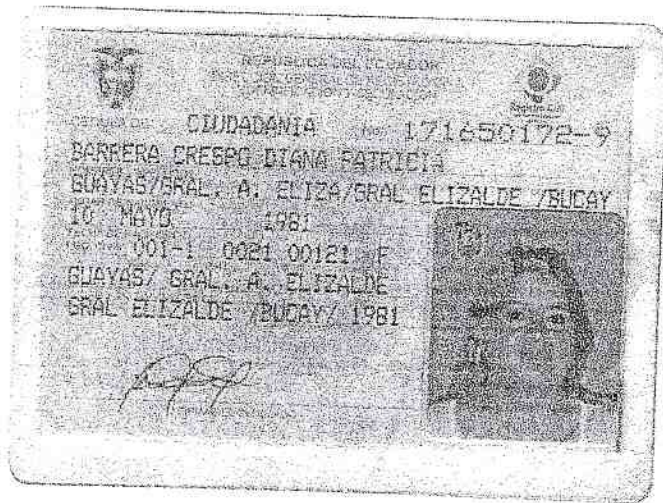 REPUBLICA DEL ECUADOR
CIUDADANIA No. 171650172-9
BARRERA CRESPO DIANA PATRICIA
GUAYAS/GRAL. A. ELIZA/GRAL ELIZALDE /BUCAY
10 MAYO 1981
001-1 0021 00121 F
GUAYAS/ GRAL. A. ELIZALDE
GRAL ELIZALDE /BUCAY/ 1981